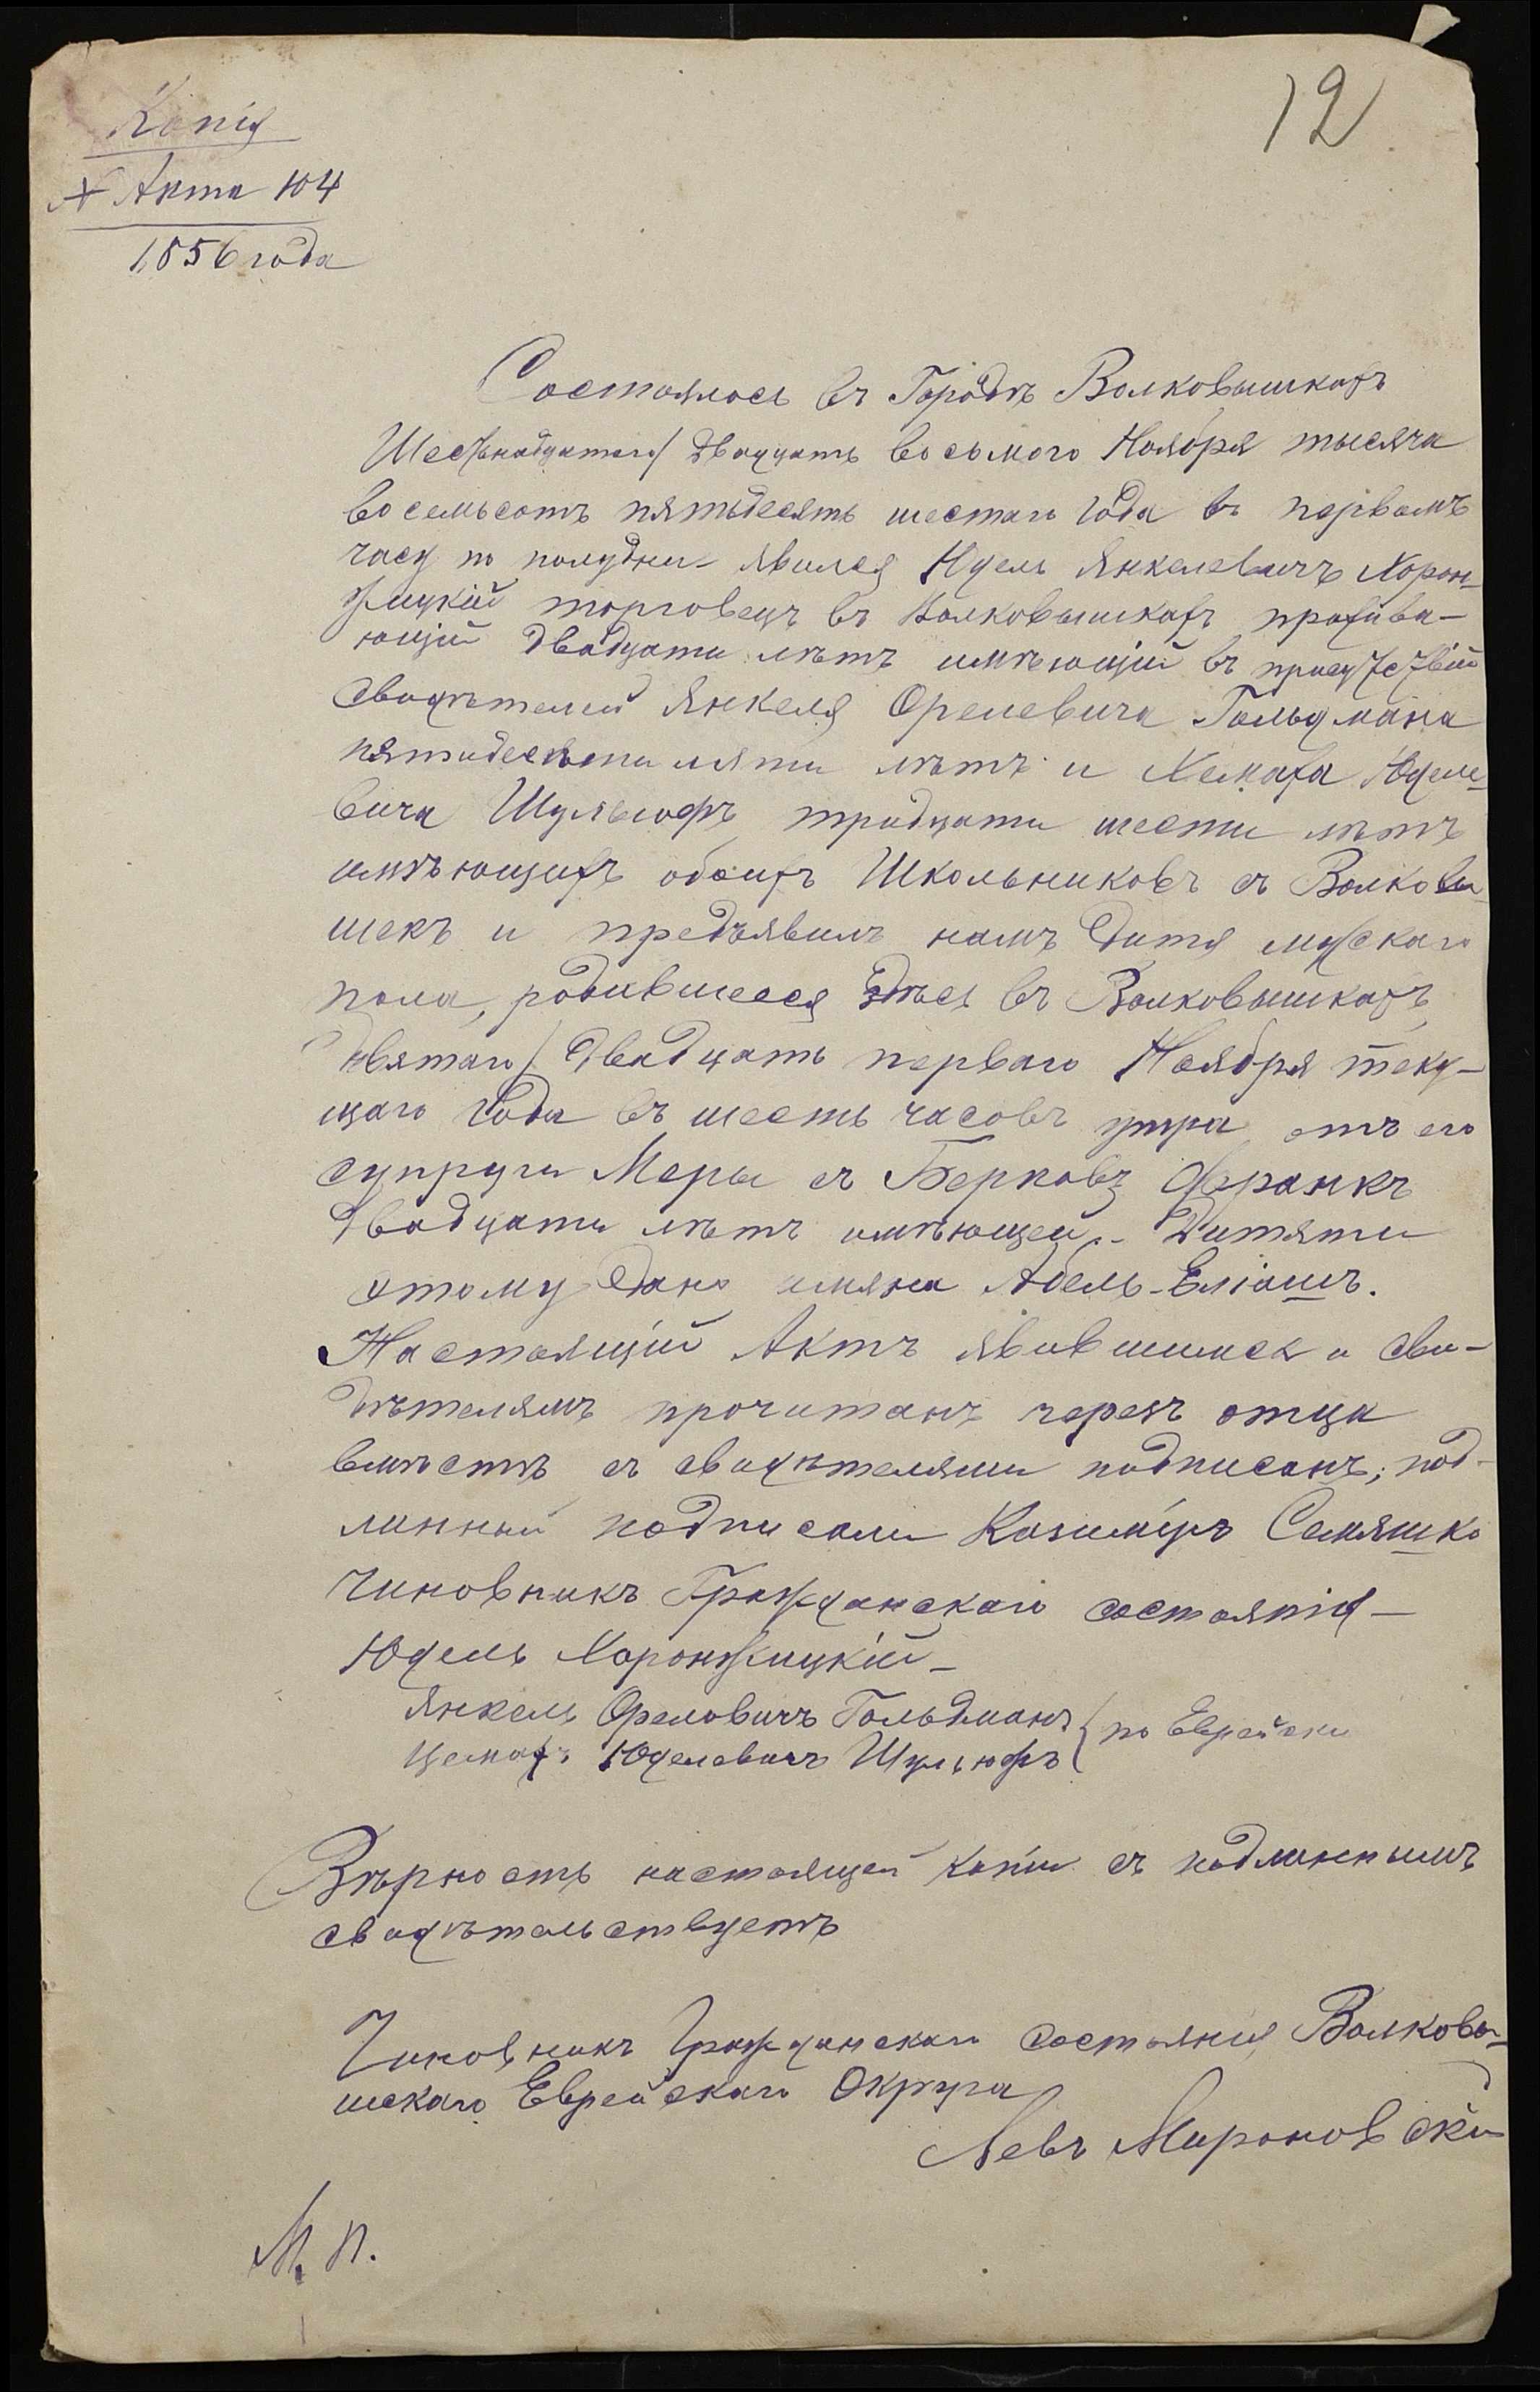 12
Копія
№ Акта 104
1856 года
Состоялось въ Городѣ Волковышкахъ
Шестьнадцатаго/ двадцать восьмого Ноября тысяча
восемьсотъ пятьдесятъ шестаго года въ первомъ
часу по полудни - явился Юдель Янкелевичъ Хорон-
жицкій торговецъ въ Волковышкахъ прожива-
ющій двадцати лѣтъ имѣющій въ присутствіи
свидѣтелей Янкеля Орелевича Гольдмана
пятидесяти пяти лѣтъ и Хемаха Юделе-
вича Шульгофъ тридцати шести лѣтъ
имѣющихъ обоихъ Школьниковъ съ Волковы-
шекъ и предъявилъ намъ дитя мужскаго
пола, родившееся здѣсь въ Волковышкахъ
девятаго/ двадцать перваго Ноября теку-
щаго года въ шесть часовъ утра отъ его
супруги Меры съ Берковъ Франкъ
двадцати лѣтъ имѣющей - Дитяти
этому дано имяна Абель-Еліашъ.
Настоящій Актъ явившимся и сви-
дѣтелямъ прочитанъ черезъ отца
вмѣстѣ съ свидѣтелями подписанъ; под-
линный подписали Казиміръ Семяшко
чиновникъ Гражданскаго состоянія -
Юдель Хоронжицкій -
Янкель Орелович Гольдманъ } по Еврейски
Цемахъ Юделевичъ Шульгофъ
Вѣрность настоящей копіи съ подлиннымъ
свидѣтельствуетъ
Чиновникъ Гражданскаго состоянія Волковы-
шскаго Еврейскаго Округа
Левъ Мироновскій
М. П.